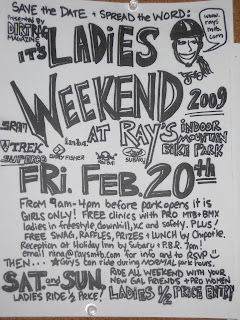 SAVE THE DATE + SPREAD THE WORD:
PRESENTED BY
DIRTRAG
MAGAZINE
IT'S LADIES
WEEKEND 2009
www.
rays
mtb.
com
AT RAY'S INDOOR
MOUNTAIN
BIKE PARK
SRAM
TREK
GARY FISHER
SUBARU
FRI. FEB. 20th
From 9am-4pm before park opens it is
GIRLS ONLY! FREE clinics with PRO MTB+BMX
ladies in freestyle, downhill, xc and safety. PLUS
FREE SWAG, RAFFLES, PRIZES + LUNCH by Chipotle.
Reception at Holiday Inn by Subaru + P.B.R. 7pm!
email nina@raysmtb.com for info and to RSVP
THEN... girls + guys can ride during NORMAL park hours.
SAT and SUN.
LADIES RIDE 1/2 PRICE!
RIDE ALL WEEKEND WITH YOUR
NEW GAL FRIENDS + PRO WOMEN
LADIES 1/2 PRICE ENTRY